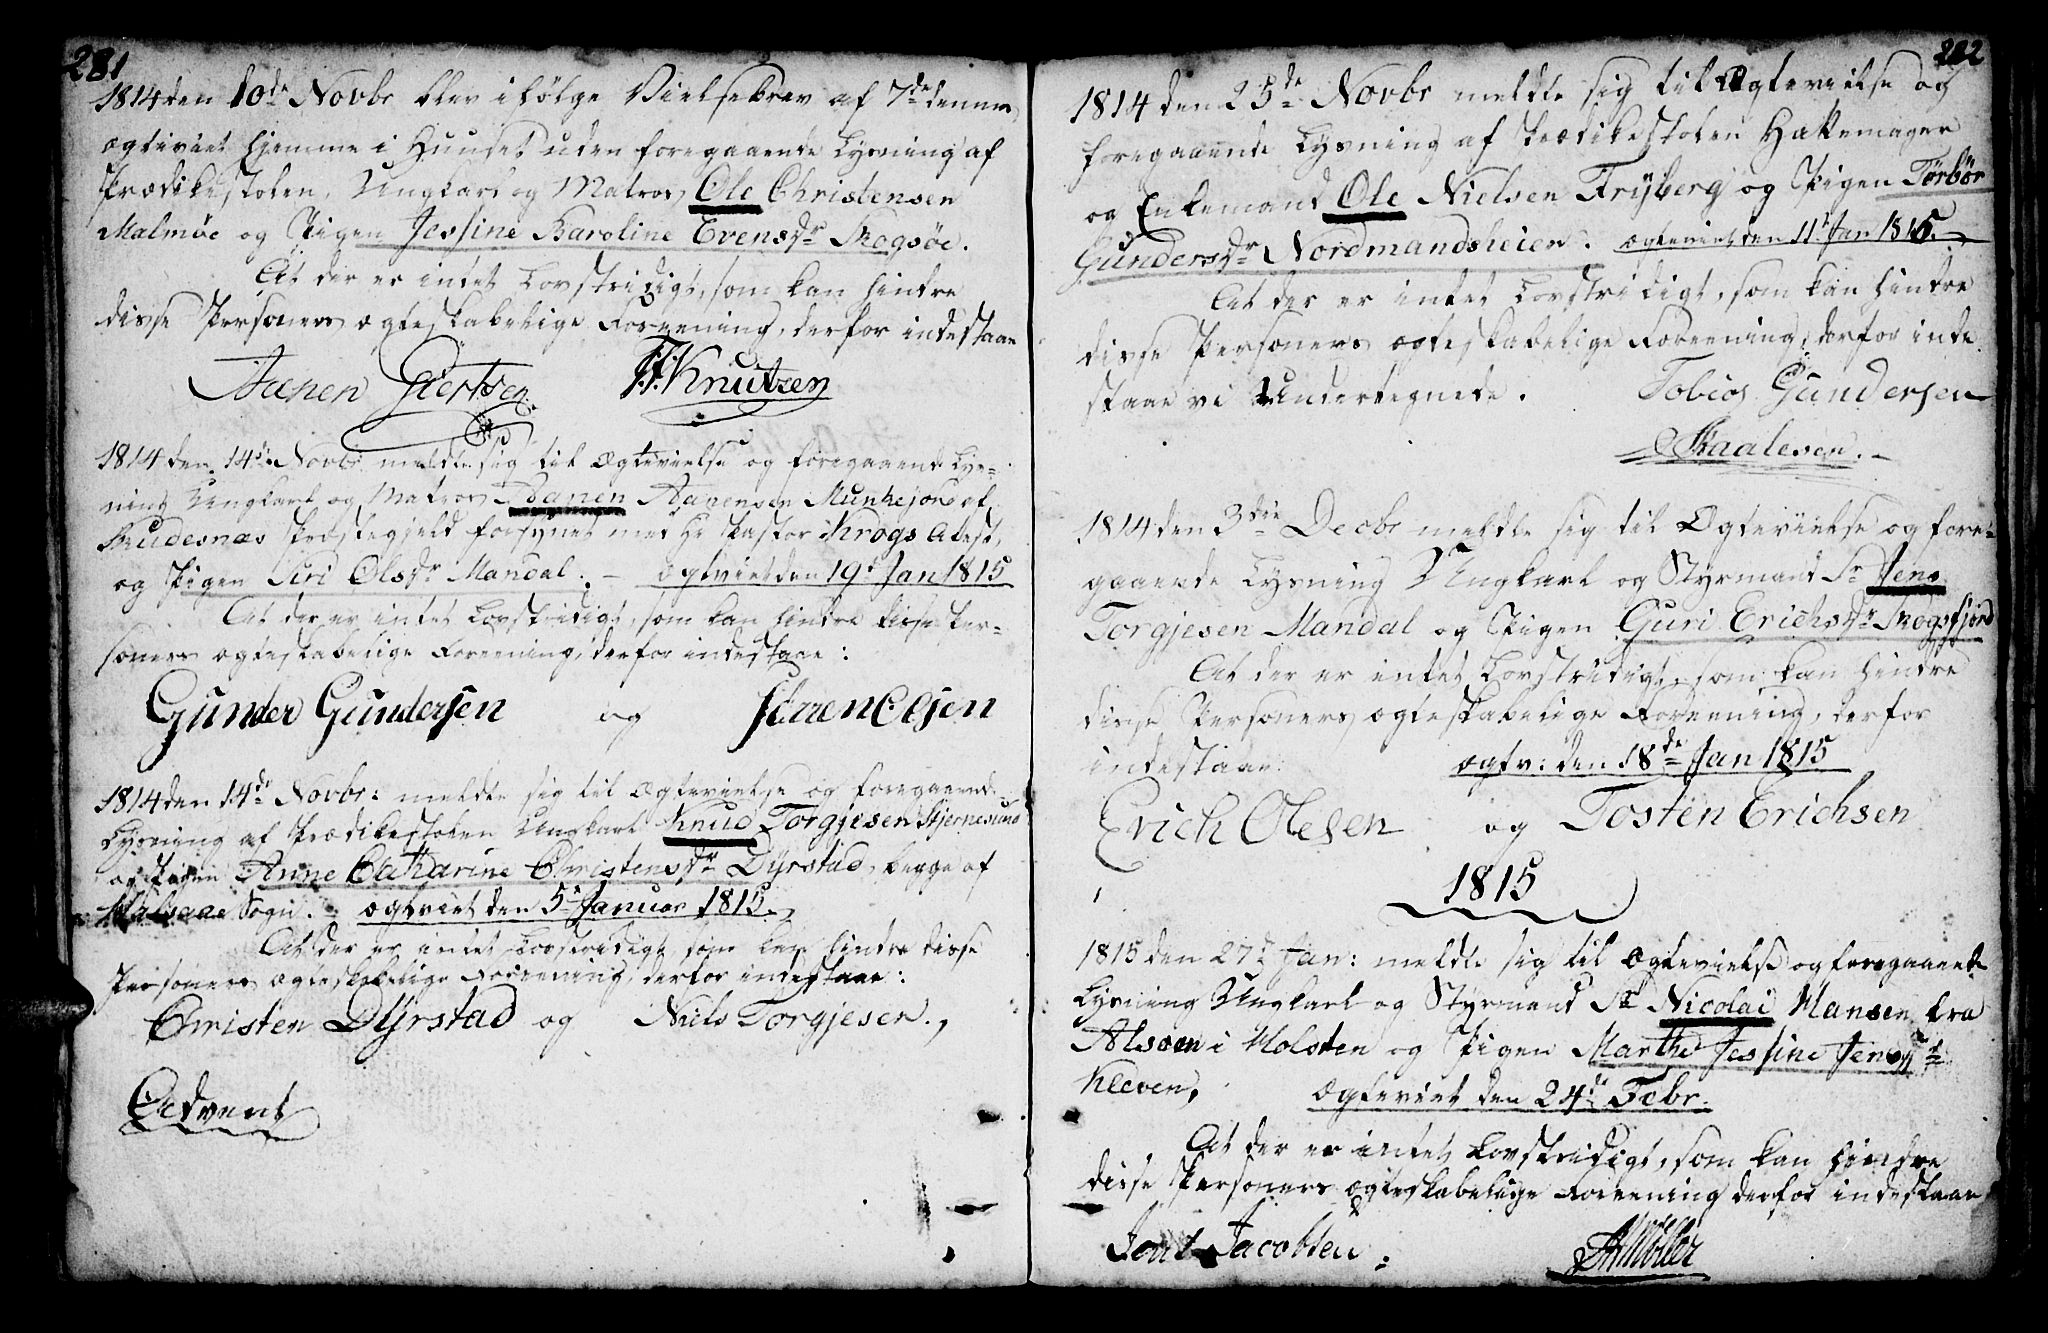 281
1814 den 10de Novbr blev ifølge Vielsebrev af 7de denne
ægteviet hjemme i Huuset uden foregaaende Lysning af
Prædikestolen, Ungkarl og Matros Ole Christensen
Malmøe og Pigen Jessine Karoline Evensdr Skogsøe.
At der er intet Lovstridigt, som kan hindre
disse Personers ægteskabelige Foreening, derfor indestaae
Aanen Giertsen F. Knutzen
1814 den 14de Novbr meldte sig til Ægtevielse og foregaaende Lys-
ning Ungkarl og Matros Aanen Aanensen Munkejord af
Præstegjeld forsynet med Hr Pastor Krogs Atest,
og Pigen Siri Olsdr Mandal. – ægtviet den 19de Jan 1815
At der er intet Lovstridigt, som kan hindre disse Per-
soners ægteskabelige Foreening, derfor indestaae:
Gunder Gundersen og Olsen
1814 den 14de Novbr: meldte sig til Ægtevielse og foregaaende
Lysning af Prædikestolen Ungkarl Knud Torgjesen Skjernesund
og Pigen Anne Catharine Christensdr Dyrstad, begge af
Halsaae Sogn. ægtviet den 5te Januar 1815.
At der er intet Lovstridigt, som kan hindre disse
Personers ægteskabelige Foreening, derfor indestaae:
Christen Dyrstad og Niels Torgjesen.
Advent
282
1814 den 25de Novbr meldte sig til Ægtevielse og
foregaaende Lysning af Prædikestolen Hattemager
og Enkemand Ole Nielsen Fryberg og Pigen Tørbør
Gundersdr Nordmandsheien. ægteviet den 11te Jan 1815.
At der er intet Lovstridigt, som kan hindre
disse Personers ægteskabelige Foreening, derfor inde
staae vi Undertegnede. Tobias Gundersen
Skaalesen.
1814 den 3die Decbr meldte sig til Ægtevielse og fore-
gaaende Lysning Ungkarl og Styrmand Sr Jens
Torgjesen Mandal og Pigen Guri Erichsdr Skogsfjord
At der er intet Lovstridigt, som kan hindre
disse Personers ægteskabelige Foreening, derfor
indestaae: ægtv: den 18de Jan 1815
Erich Olesen og Tosten Erichsen
1815
1815 den 27de Jan: meldte sig til Ægtevielse og foregaaende
Lysning Ungkarl og Styrmand Sr Nicolai Hansen fra
Alsøen i Holsten og Pigen Marthe Jessine Jensdr
Kleven, ægteviet den 24de Febr.
At der er intet Lovstridigt, som kan hindre
disse Personers ægteskabelige Foreening derfor indestaae
Jacobsen Möller